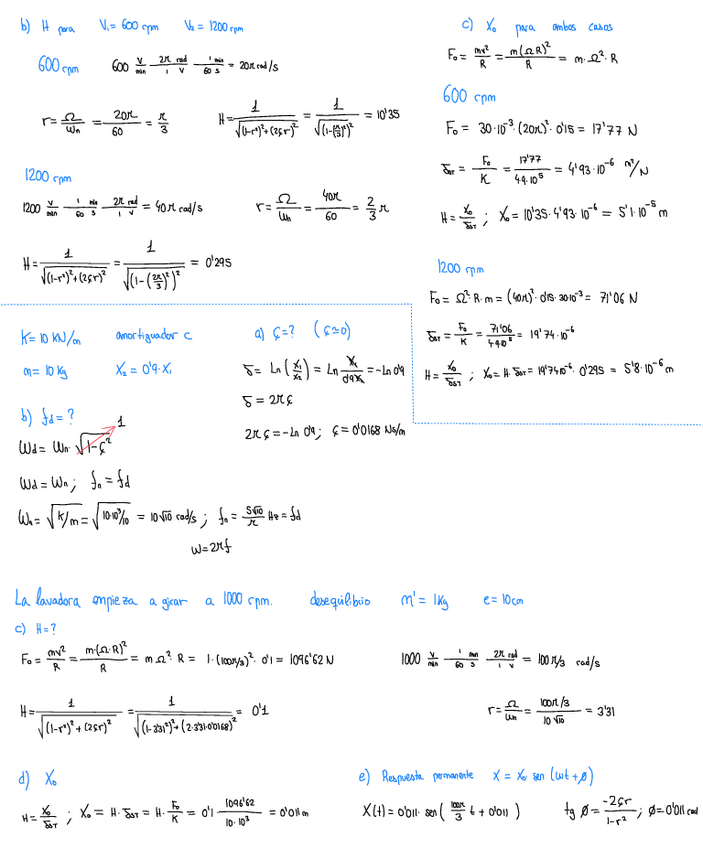 b) H para V₁ = 600 rpm V₂ = 1200 rpm
600 rpm 600 v/min · 2π rad/1 v · 1 min/60 s = 20π rad/s
r = Ω/ωn = 20π/60 = π/3 H = 1/√((1-r²)²+(2ςr)²) = 1/√((1-(π/3)²)²) = 10'35
1200 rpm
1200 v/min · 1 min/60 s · 2π rad/1 v = 40π rad/s r = Ω/ωn = 40π/60 = 2/3 π
H = 1/√((1-r²)²+(2ςr)²) = 1/√((1-(2π/3)²)²) = 0'295
c) X₀ para ambos casos
F₀ = mv²/R = m(ΩR)²/R = m·Ω²·R
600 rpm
F₀ = 30·10⁻³·(20π)²·0'15 = 17'77 N
δST = F₀/K = 17'77/ = 4'93·10⁻⁶ m²/N
H = X₀/δST ; X₀ = 10'35·4'93·10⁻⁶ = 5'1·10⁻⁵ m
1200 rpm
F₀ = Ω²·R·m = (40π)²·0'15·30·10⁻³ = 71'06 N
δST = F₀/K = 71'06/ = 19'74·10⁻⁶
H = X₀/δST ; X₀ = H·δST = 19'74·10⁻⁶·0'295 = 5'8·10⁻⁶ m
K = 10 KN/m amortiguador c a) ς = ? (ς≃0)
m = 10 Kg X₂ = 0'9·X₁
δ = Ln(X₁/X₂) = Ln X₁/0'9X₁ = -Ln 0'9
δ = 2πς
2πς = -Ln 0'9 ; ς = 0'0168 Ns/m
b) fd = ?
ωd = ωn·√(1-ς²) 1
ωd = ωn ; fn = fd
ωn = √(K/m) = √(10·10³/10) = 10√10 rad/s ; fn = 5√10/π Hz = fd
ω = 2πf
La lavadora empieza a girar a 1000 rpm. desequilibrio m' = 1Kg e = 10cm
c) H = ?
F₀ = mv²/R = m·(Ω·R)²/R = m Ω²·R = 1·(100π/3)²·0'1 = 1096'62 N 1000 v/min · 1 min/60 s · 2π rad/1 v = 100π/3 rad/s
H = 1/√((1-r²)²+(2ςr)²) = 1/√((1-3'31²)²+(2·3'31·0'0168)²) = 0'1 r = Ω/ωn = 100π/3/10√10 = 3'31
d) X₀ e) Respuesta permanente X = X₀ sen (ωt+ϕ)
H = X₀/δST ; X₀ = H·δST = H·F₀/K = 0'1·1096'62/10·10³ = 0'011 m X(t) = 0'011·sen(100π/3 t + 0'011) tg ϕ = -2ςr/1-r² ; ϕ = 0'011 rad